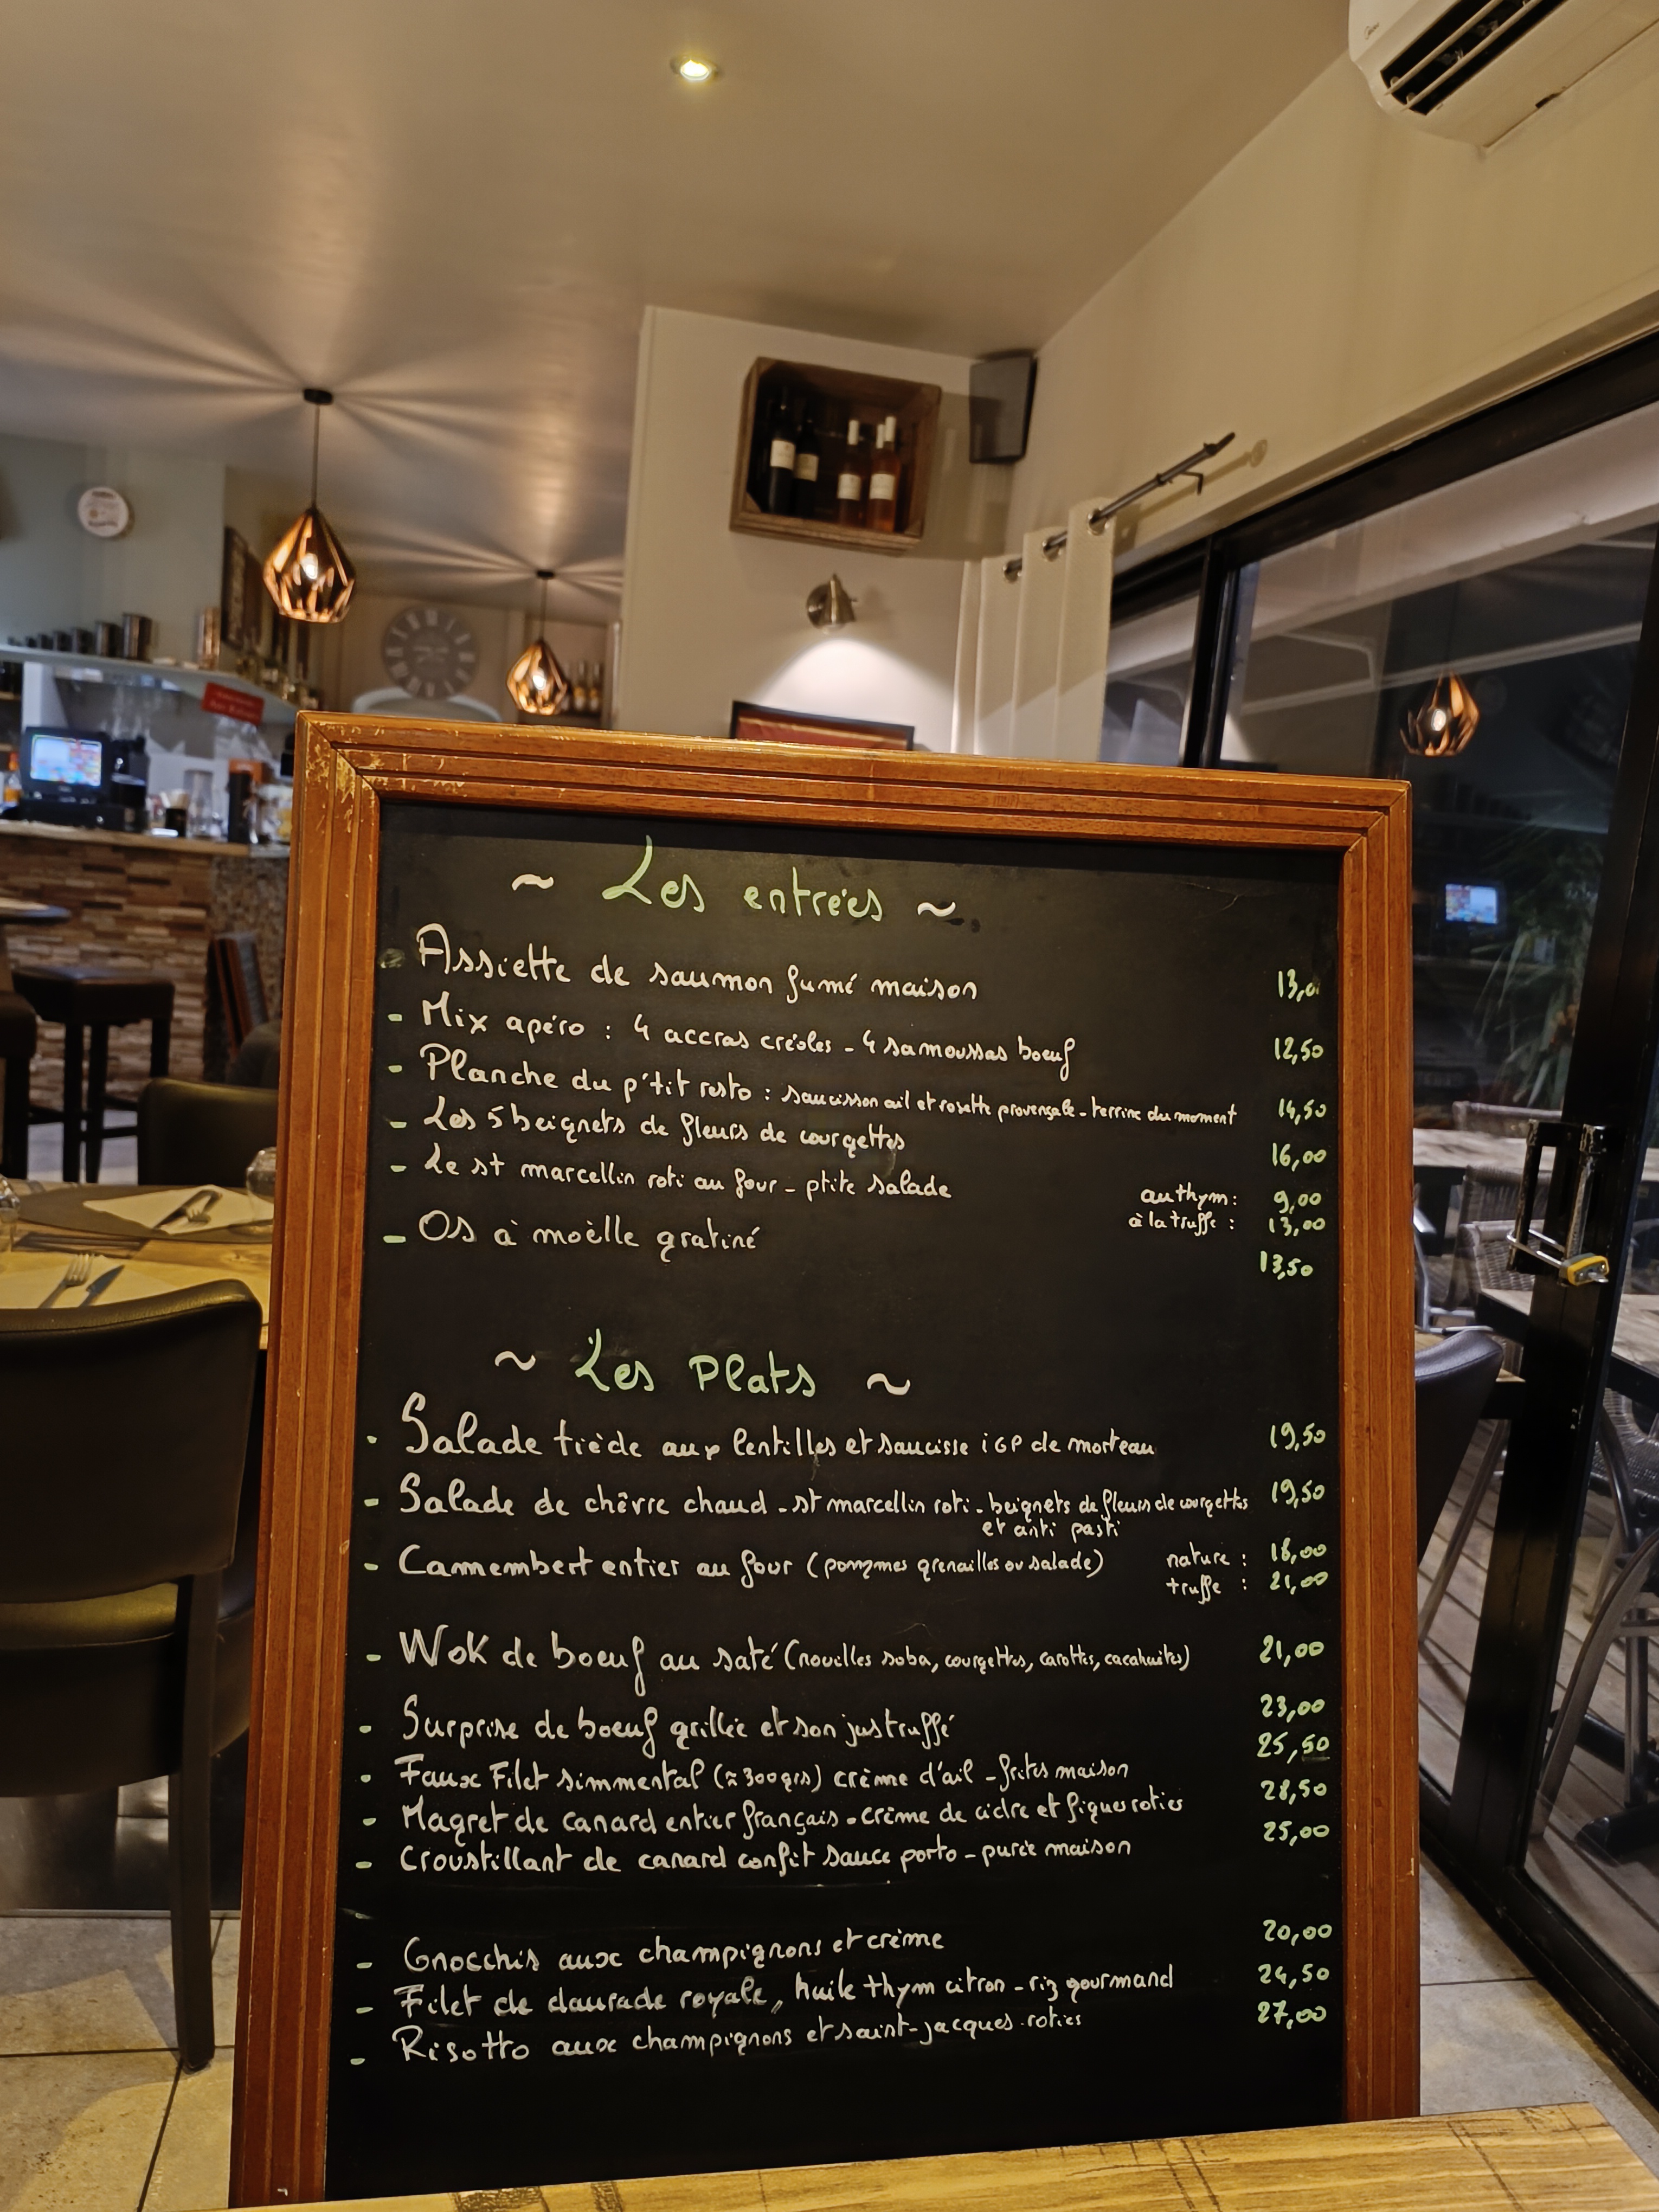 ~ Les entrées ~
Assiette de saumon fumé maison 13,0
- Mix apéro : 4 accras créoles - 4 samoussas boeuf 12,50
- Planche du p'tit resto : saucisson ail et rosette provençale - terrine du moment 14,50
- Les 5 beignets de fleurs de courgettes 16,00
- Le st marcellin roti au four - ptite salade au thym : 9,00
à la truffe : 13,00
- Os à moëlle gratiné 13,50
~ Les Plats ~
- Salade tiède aux lentilles et saucisse iGP de morteau 19,50
- Salade de chêvre chaud - st marcellin roti - beignets de fleurs de courgettes 19,50
et anti pasti
- Camembert entier au four (pommes grenailles ou salade) nature : 18,00
truffe : 21,00
- Wok de boeuf au saté (nouilles soba, courgettes, carottes, cacahuètes) 21,00
- Surprise de boeuf grillée et son jus truffé 23,00
- Faux Filet simmental (≈ 300 grs) crème d'ail - frites maison 25,50
- Magret de canard entier français - crème de cidre et figues roties 28,50
- Croustillant de canard confit sauce porto - purée maison 25,00
- Gnocchis aux champignons et crème 20,00
- Filet de daurade royale, huile thym citron - riz gourmand 24,50
- Risotto aux champignons et saint-jacques roties 27,00